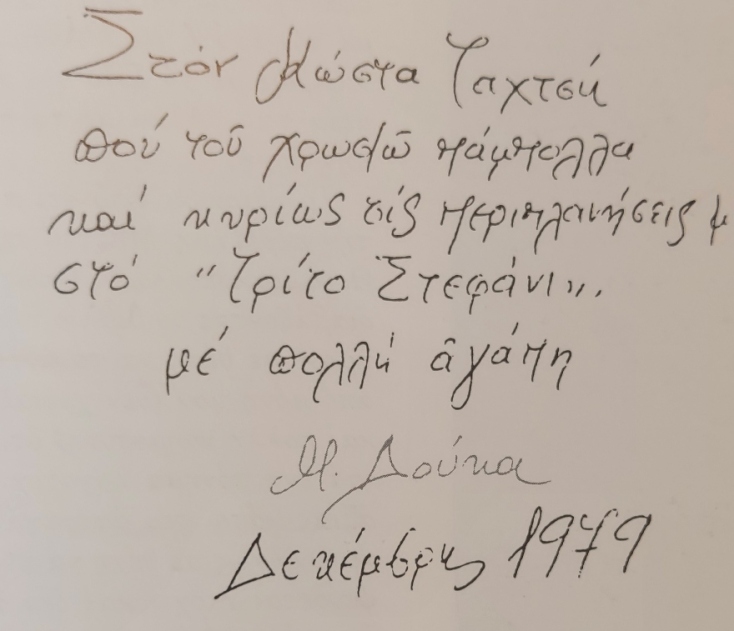 Στόν Κώστα Ταχτσή
πού τοῦ χρωστῶ πάμπολλα
καί κυρίως τίς περιπλανήσεις μ
στό "Τρίτο Στεφάνι".
μέ πολλή ἀγάπη
Μ. Δούκα
Δεκέμβρης 1979